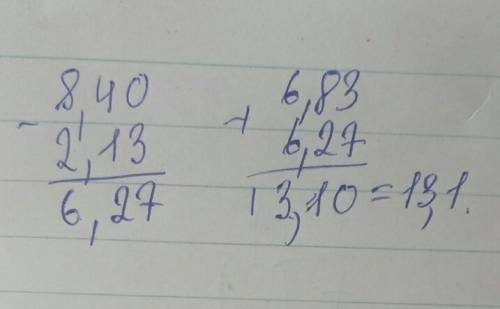 8,40
- 2,13
6,27
6,83
+ 6,27
13,10 = 13,1.